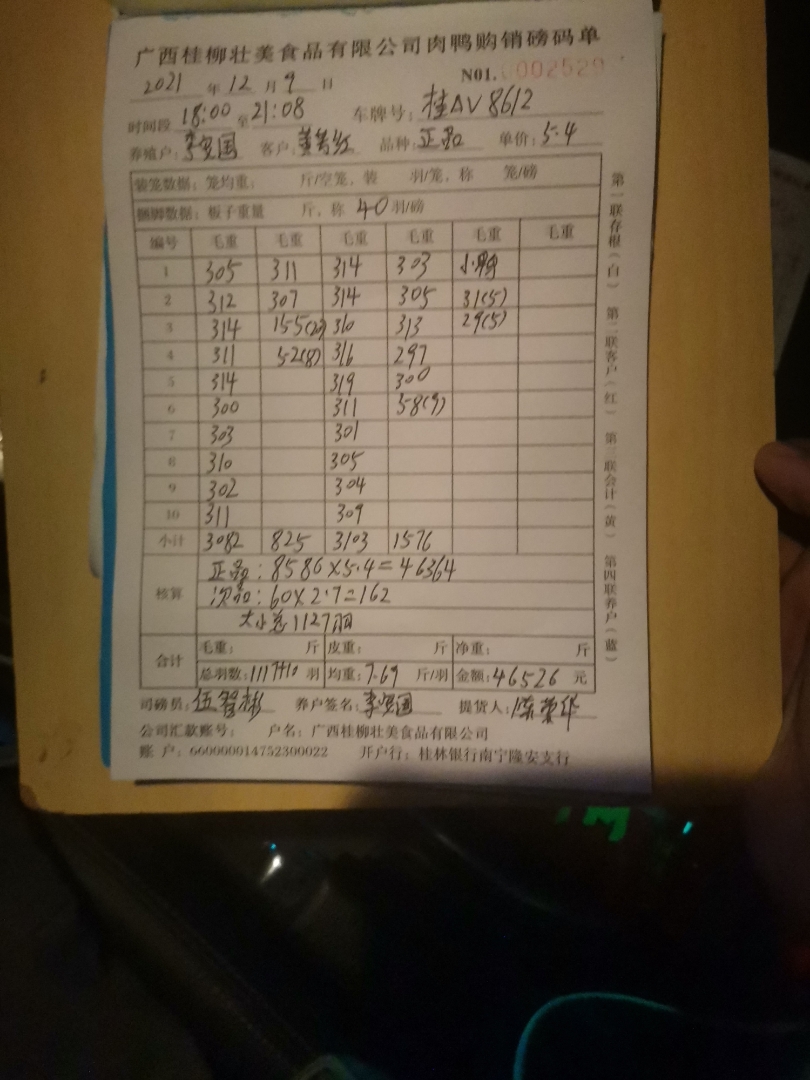 广西桂柳壮美食品有限公司肉鸭购销磅码单
2021 年 12 月 9 日 N01.0002529
时间段 18:00 至 21:08 车牌号: 桂AV8612
养殖户: 李 国 客户: 黄 红 品种: 正品 单价: 5.4
装笼数据: 笼均重: 斤/空笼, 装 羽/笼, 称 笼/磅
捆脚数据: 板子重量 斤, 称 40 羽/磅
编号 毛重 毛重 毛重 毛重 毛重 毛重
1 305 311 314 303 小鸭
2 312 307 314 305 31(5)
3 314 155(20) 310 313 29(5)
4 311 52(8) 316 297
5 314 319 300
6 300 311 58(9)
7 303 301
8 310 305
9 302 304
10 311 309
小计 3082 825 3103 1576
核算 正品: 8586×5.4=46364
次品: 60×2.7=162
大小总1127羽
合计 毛重: 斤 皮重: 斤 净重: 斤
总羽数: 1117+10 羽 均重: 7.69 斤/羽 金额: 46526 元
司磅员: 伍智彬 养户签名: 李 国 提货人: 陈荣华
公司汇款账号: 户名: 广西桂柳壮美食品有限公司
账 户: 660000014752300022 开户行: 桂林银行南宁隆安支行
第一联存根(白) 第二联客户(红) 第三联会计(黄) 第四联养户(蓝)